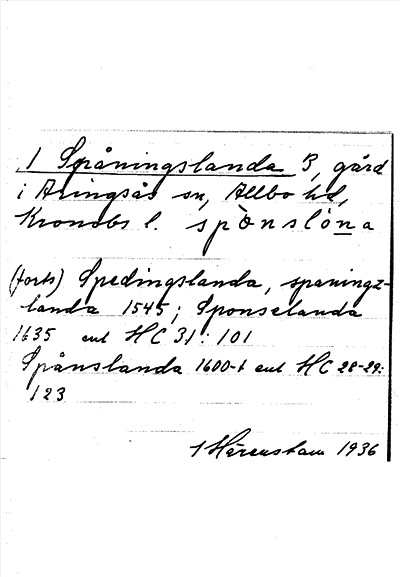 1 Spåningslanda B, gård
i Aringsås sn, Allbo hd,
Kronobs l. spònslóna
(forts) Spedingslanda, spaningz-
landa 1545; Sponselanda
1635 enl HC 31:101
Spånslanda 1600-t enl HC 28-29:
123
1 Härenstam 1936